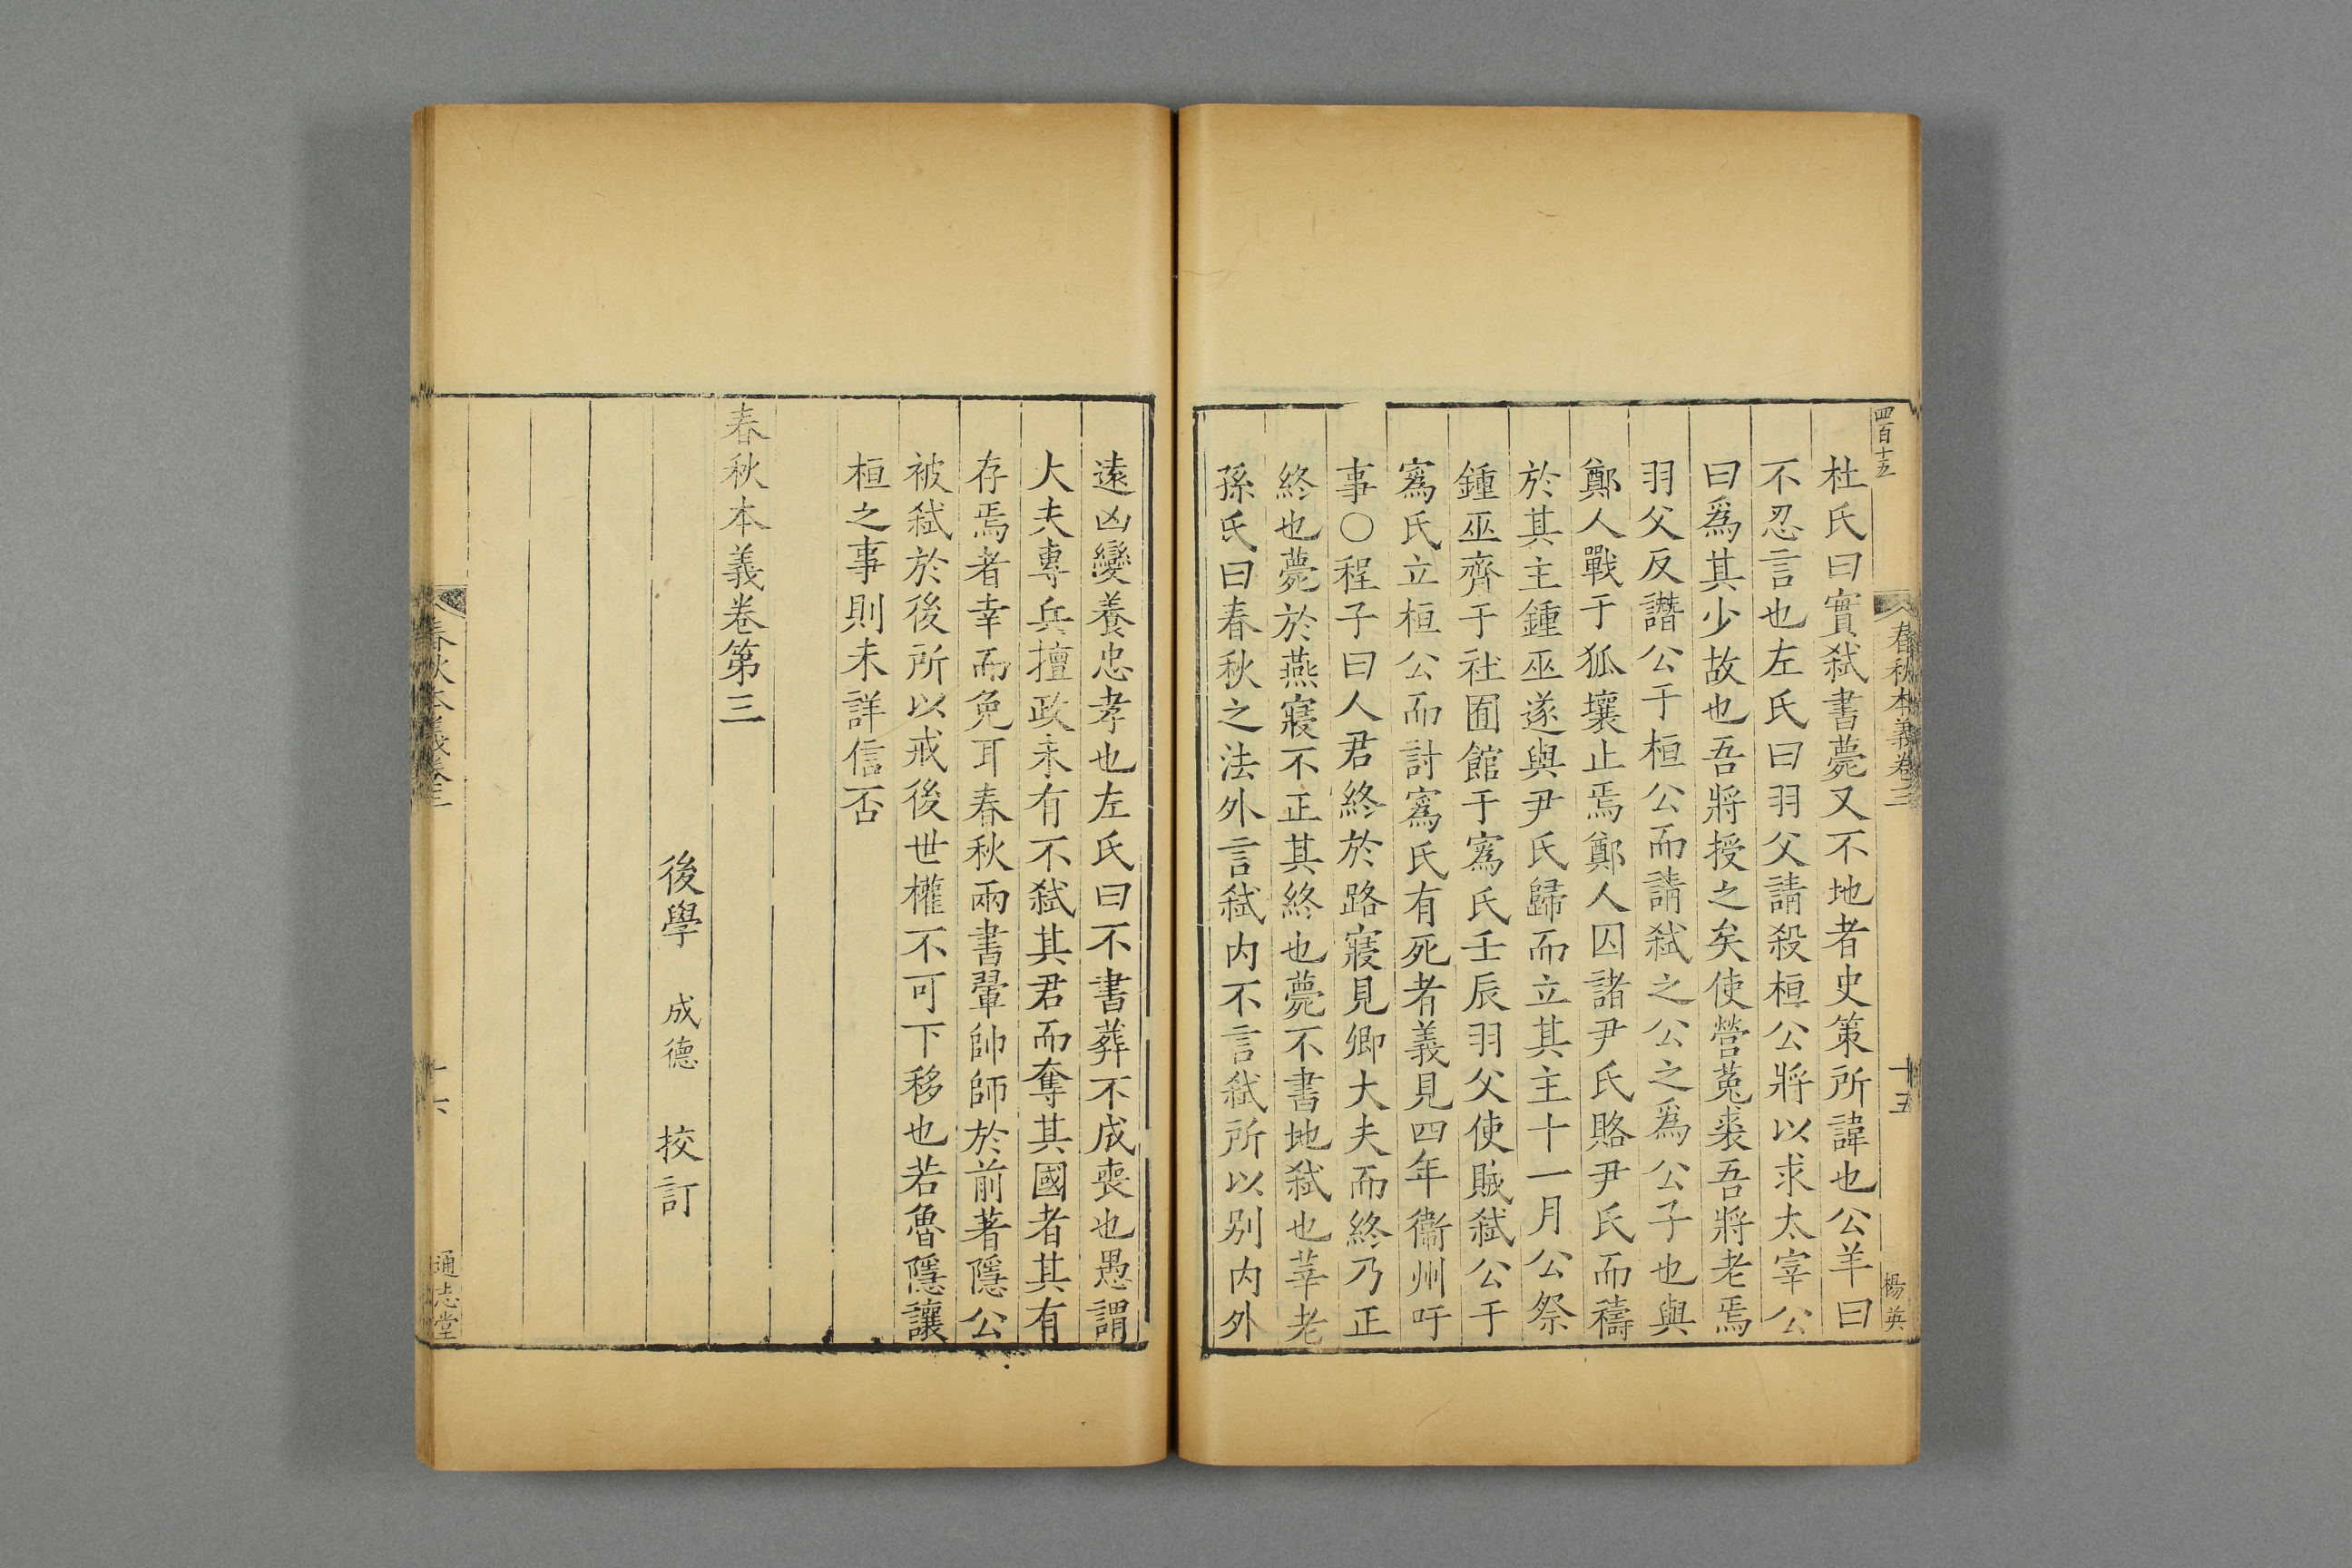 四百十五
春秋本義卷三
十五
楊英
杜氏曰實弑書薨又不地者史策所諱也公羊曰
不忍言也左氏曰羽父請殺桓公將以求太宰公
曰爲其少故也吾將授之矣使營菟裘吾將老焉
羽父反譖公于桓公而請弑之公之爲公子也與
鄭人戰于狐壤止焉鄭人囚諸尹氏賂尹氏而禱
於其主鍾巫遂與尹氏歸而立其主十一月公祭
鍾巫齊于社囿館于寪氏壬辰羽父使賊弑公于
寪氏立桓公而討寪氏有死者義見四年衞州吁
事○程子曰人君終於路寢見卿大夫而終乃正
終也薨於燕寢不正其終也薨不書地弑也莘老
孫氏曰春秋之法外言弑内不言弑所以别内外
遠凶變養忠孝也左氏曰不書葬不成喪也愚謂
大夫專兵擅政未有不弑其君而奪其國者其有
存焉者幸而免耳春秋兩書翬帥師於前著隱公
被弑於後所以戒後世權不可下移也若魯隱讓
桓之事則未詳信否
春秋本義卷第三
後學 成德 挍訂
春秋本義卷三
十六
通志堂